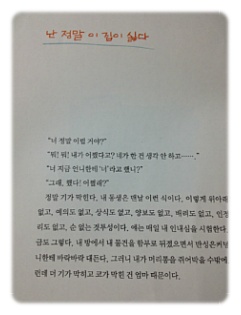 난 정말 이 집이 싫다
"너 정말 이럴 거야?"
"뭐! 뭐! 내가 어쨌다고? 네가 한 건 생각 안 하고……."
"너 지금 언니한테 '너'라고 했니?"
"그래, 했다! 어쩔래?"
정말 기가 막힌다. 내 동생은 맨날 이런 식이다. 이렇게 위아래
없고, 예의도 없고, 상식도 없고, 양보도 없고, 배려도 없고, 인정
머리도 없고, 순 없는 것투성이다. 애는 매일 내 인내심을 시험한다.
금도 그렇다. 내 방에서 내 물건을 함부로 뒤졌으면서 반성은커녕
니한테 바락바락 대든다. 그래서 내가 머리통을 쥐어박을 수밖에
런데 더 기가 막히고 코가 막힌 건 엄마 때문이다.